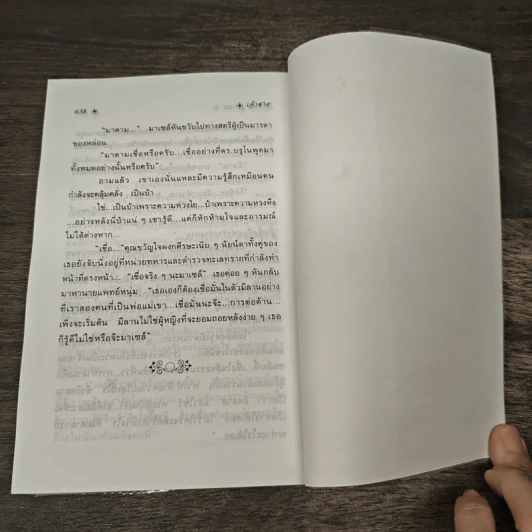 ๖๓๘ เจ้าซาตาน
"มาดาม..." มาเซล์หันขวับไปทางสตรีผู้เป็นมารดา
ของหล่อน
"มาดามเชื่อหรือครับ...เชื่ออย่างที่ดร.บรูโนพูดมา
ทั้งหมดอย่างนั้นหรือครับ"
ถามแล้ว เขาเองนั่นแหละมีความรู้สึกเหมือนคน
กำลังจะคลุ้มคลั่ง เป็นบ้า
ใช่...เป็นบ้าเพราะความห่วงใย...บ้าเพราะความหวงหึง
...อย่างหลังนี่บ้าแน่ ๆ เขารู้ดี...แต่ก็หักห้ามใจและอารมณ์
ไม่ได้ต่างหาก...
"เชื่อ..." คุณขวัญใจผงกศีรษะเนิบ ๆ นัยน์ตาทั้งคู่ของ
เธอยังจับนิ่งอยู่ที่หน่วยทหารและตำรวจทะเลทรายที่กำลังทำ
หน้าที่ตรงหน้า... "เชื่อจริง ๆ นะมาเซล์" เธอค่อย ๆ หันกลับ
มาหานายแพทย์หนุ่ม "เธอเองก็ต้องเชื่อมั่นในตัวมิลานอย่าง
ที่เราสองคนที่เป็นพ่อแม่เขา...เชื่อมั่นนะจ๊ะ...การต่อต้าน...
เพิ่งจะเริ่มต้น มิลานไม่ใช่ผู้หญิงที่จะยอมถอยหลังง่าย ๆ เธอ
ก็รู้ดีไม่ใช่หรือจ๊ะมาเซล์"